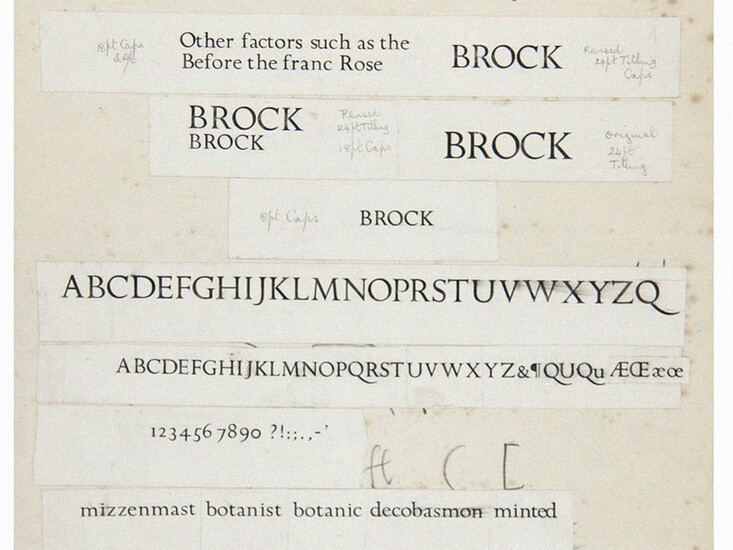 18pt Caps
& l/c
Other factors such as the
Before the franc Rose
BROCK
Revised
24pt Titling
Caps
BROCK
BROCK
Revised
24pt Titling
18pt Caps
BROCK
Original
24pt
Titling
18pt Caps
BROCK
ABCDEFGHIJKLMNOPRSTUVWXYZQ
ABCDEFGHIJKLMNOPQRSTUVWXYZ&¶QUQu ÆŒæœ
1234567890 ?!:;.,-’
ft ( [
mizzenmast botanist botanic decobasmon minted